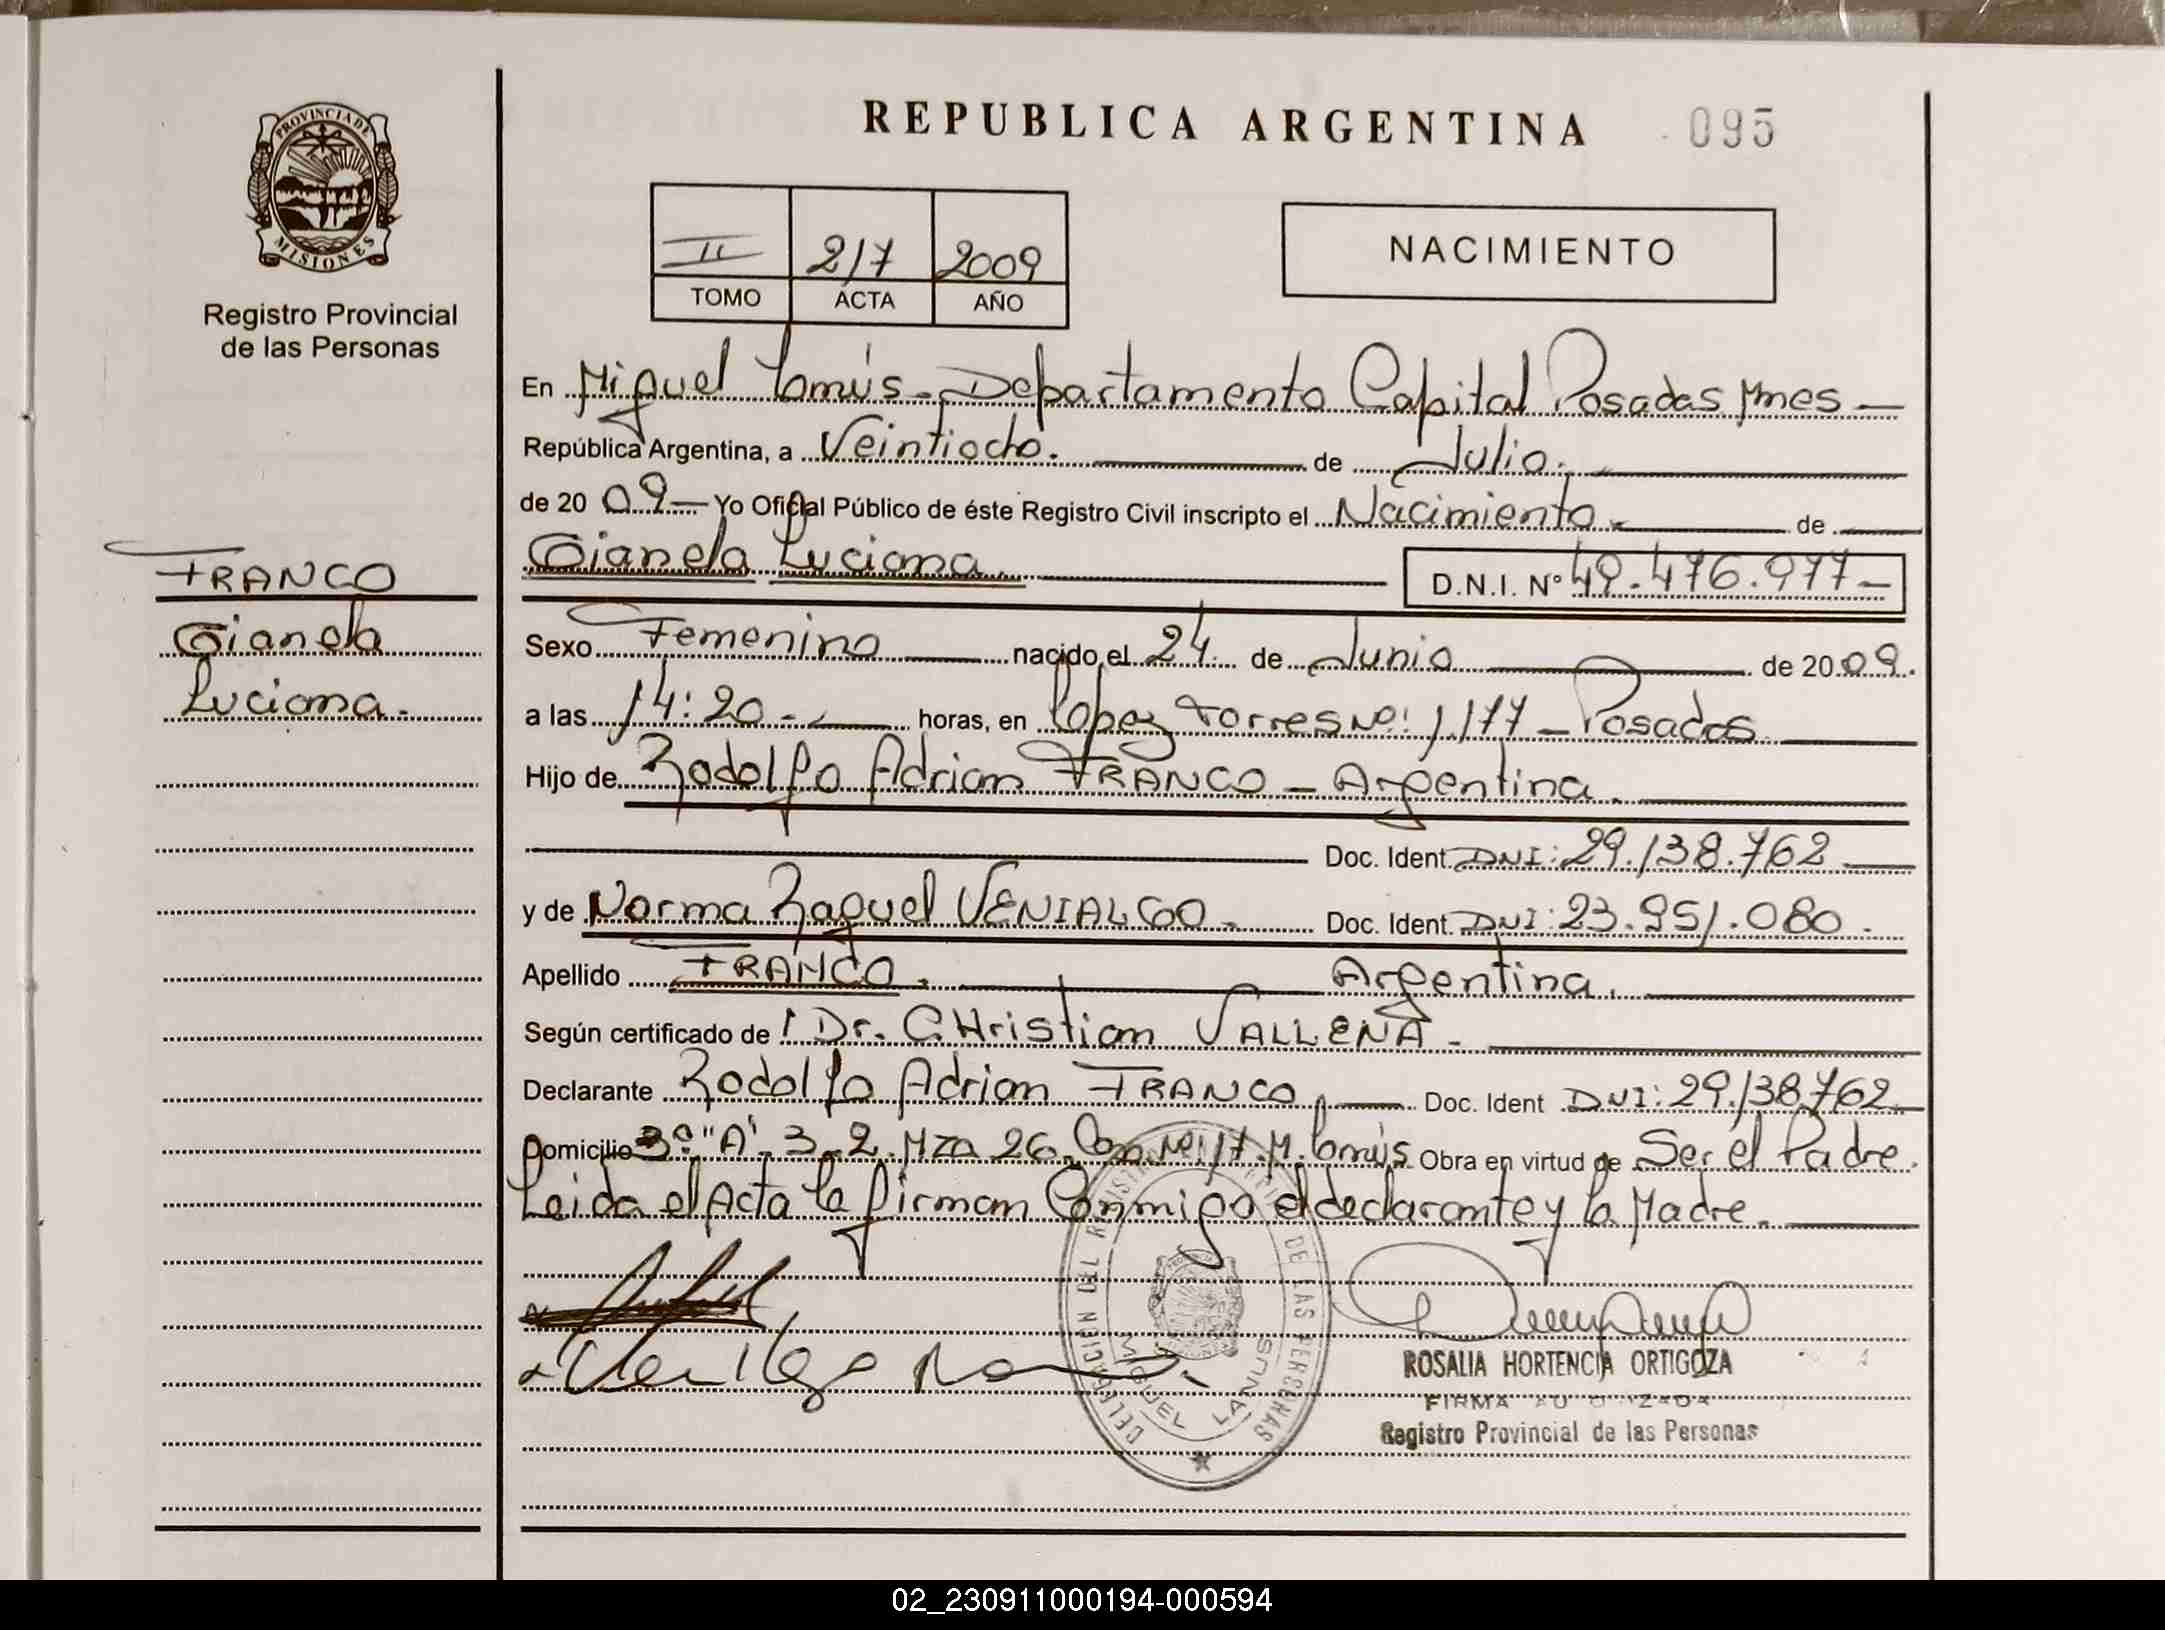 REPUBLICA ARGENTINA
095
PROVINCIA DE
MISIONES
Registro Provincial
de las Personas
II 217 2009
TOMO ACTA AÑO
NACIMIENTO
En Miguel Lanús - Departamento Capital Posadas Mnes -
República Argentina, a Veintiocho. de Julio.
de 20 09 - Yo Oficial Público de éste Registro Civil inscripto el Nacimiento - de
Gianela Luciana. D.N.I. Nº 49.476.977 -
FRANCO
Gianela
Luciana.
Sexo Femenino nacido el 24 de Junio de 20 09.
a las 14:20 - horas, en Lopez Torres Nº: 1.177 - Posadas
Hijo de Rodolfo Adrian FRANCO - Argentina.
Doc. Ident. DNI: 29.138.762
y de Norma Raquel VENIALGO - Doc. Ident. DNI: 23.951.080.
Apellido FRANCO. Argentina.
Según certificado de Dr. CHristian VALLENA -
Declarante Rodolfo Adrian FRANCO, Doc. Ident DNI: 29.138.762
Domicilio 3º "A" 3-2 Mza 26 Nº: 17. M. Lanús. Obra en virtud de Ser el Padre.
Leida el Acta la firman Conmigo el declarante y la Madre.
DELEGACIÓN DEL REGISTRO DE LAS PERSONAS
MIGUEL LANUS
ROSALIA HORTENCIA ORTIGOZA
FIRMA AUTORIZADA
Registro Provincial de las Personas
02_230911000194-000594